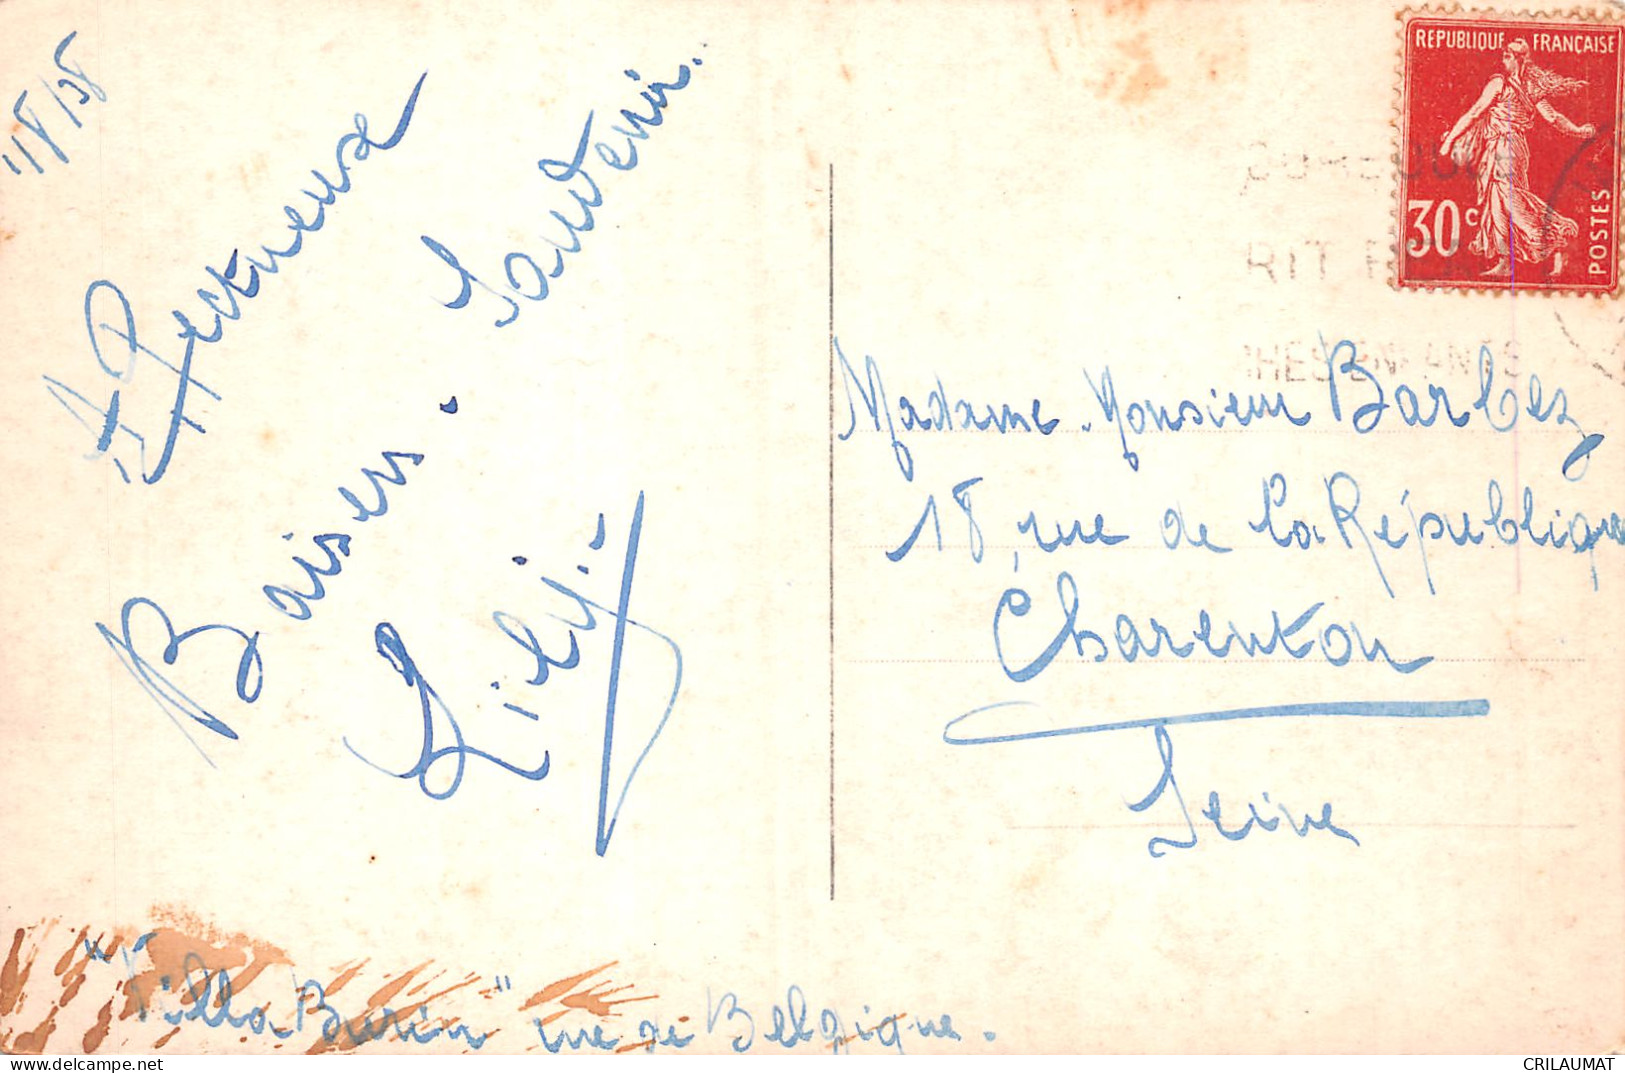 1/8/38
Affectueux
Souvenir.
Baisers.
Lily.
"Villa Burin" rue de Belgique.
REPUBLIQUE FRANÇAISE
30c
POSTES
RIT
CHES ENFANTS
Madame. Monsieur Barbez
18, rue de la République
Charenton
Seine
CRILAUMAT